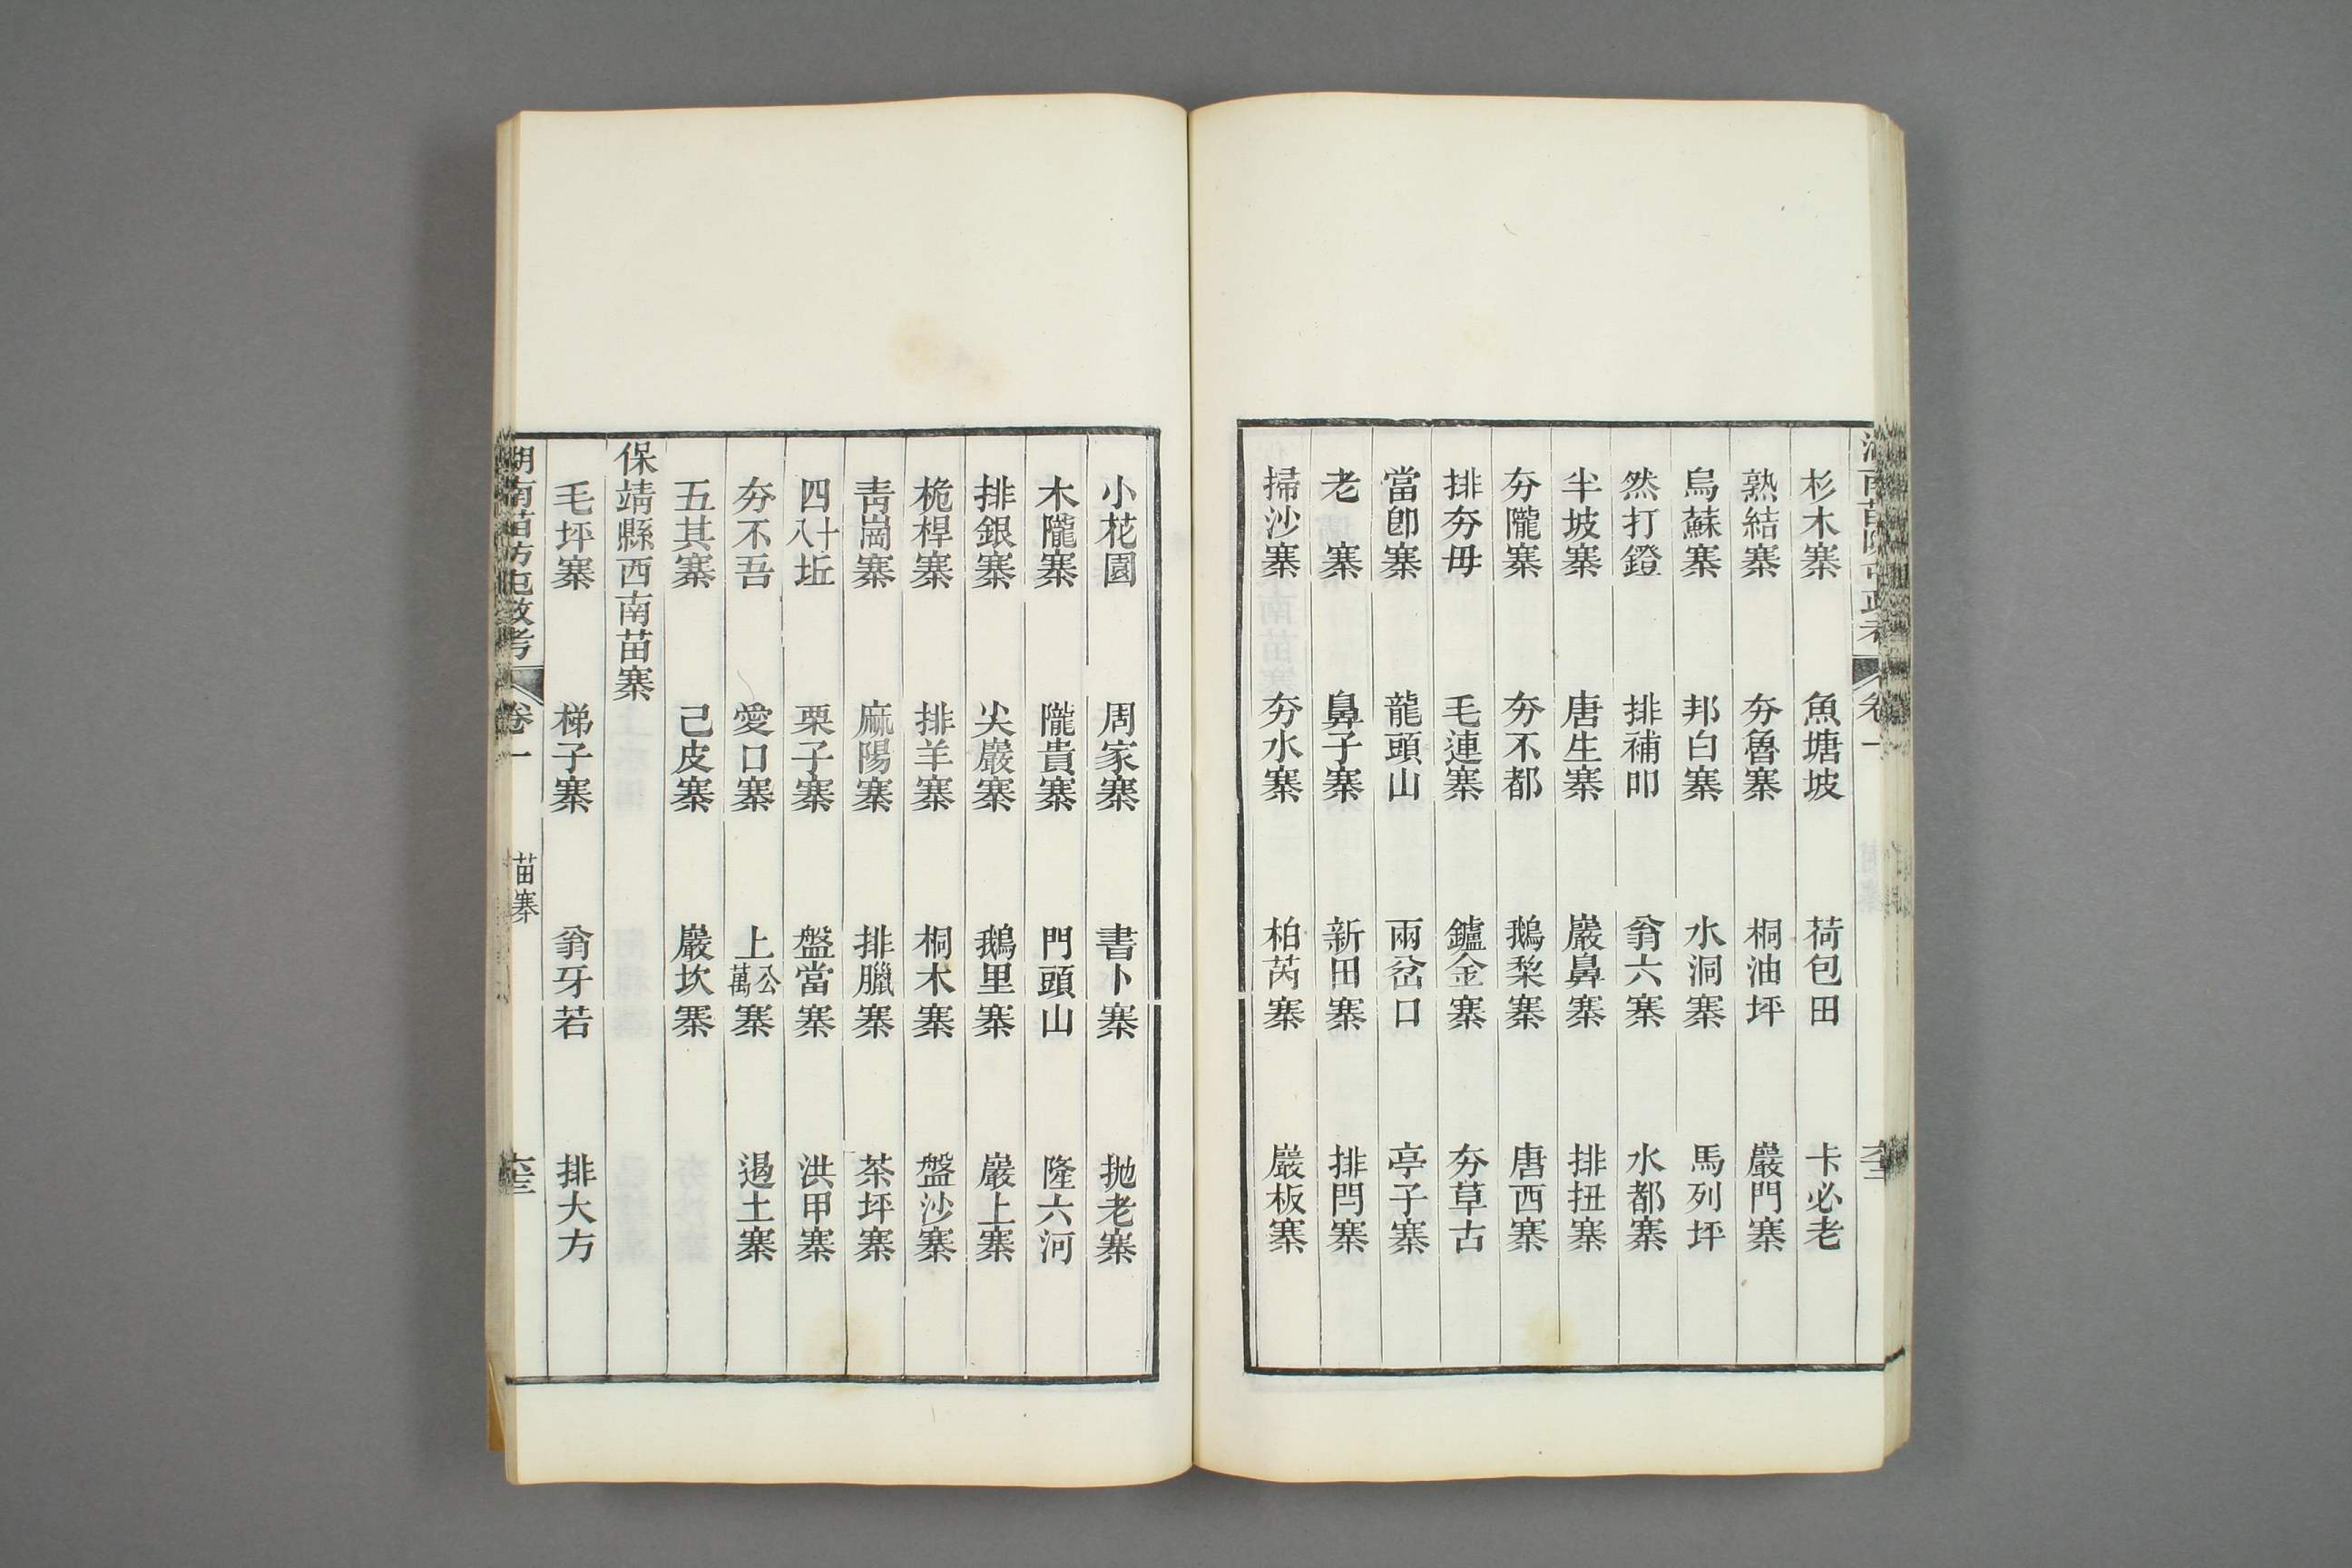 杉木寨　魚塘坡　荷包田　卡必老
熟結寨　夯魯寨　桐油坪　巖門寨
烏蘇寨　邦白寨　水洞寨　馬列坪
然打鐙　排補叩　翁六寨　水都寨
半坡寨　唐生寨　巖鼻寨　排扭寨
夯隴寨　夯不都　鵝棃寨　唐西寨
排夯毋　毛連寨　鑪金寨　夯草古
當卽寨　龍頭山　兩岔口　亭子寨
老寨　鼻子寨　新田寨　排閂寨
掃沙寨　夯水寨　柏芮寨　巖板寨
小花園　周家寨　書卜寨　抛老寨
木隴寨　隴貴寨　門頭山　隆六河
排銀寨　尖巖寨　鵝里寨　巖上寨
桅桿寨　排羊寨　桐木寨　盤沙寨
靑崗寨　麻陽寨　排臘寨　茶坪寨
四十八坵　栗子寨　盤當寨　洪甲寨
夯不吾　愛口寨　上公萬寨　遏土寨
五其寨　己皮寨　巖坎寨
保靖縣西南苗寨
毛坪寨　梯子寨　翁牙若　排大方
湖南苗防屯政考　卷一　苗寨　六十三